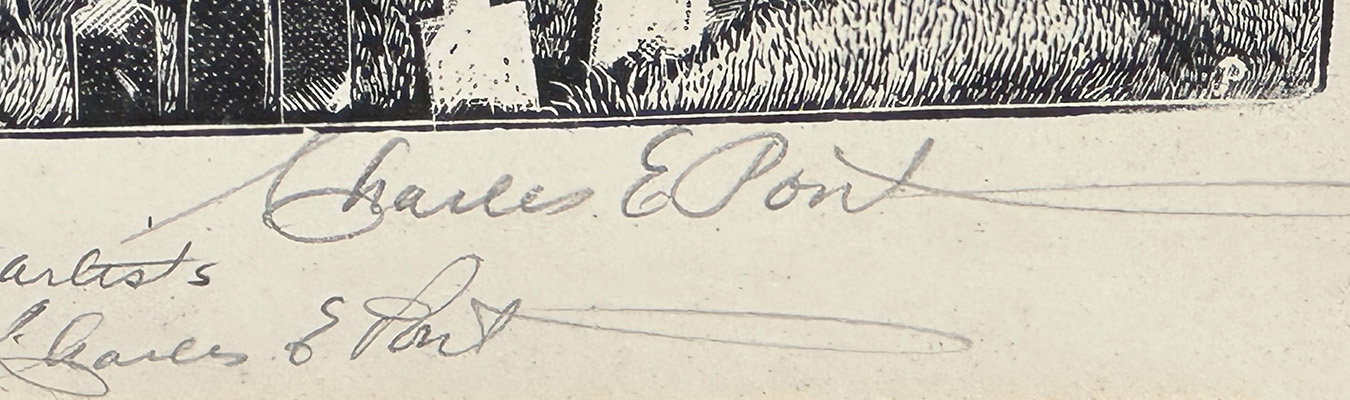 Charles E Pont
artist's
Charles E Pont